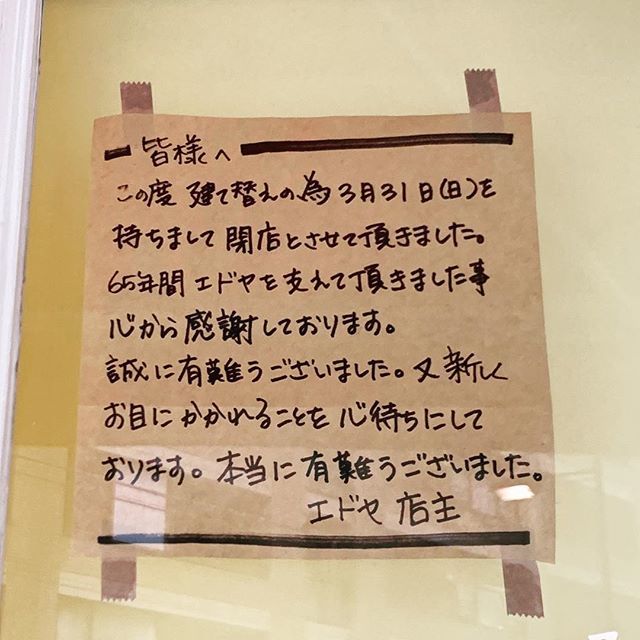 皆様へ
この度 建て替えの為3月31日(日)を
持ちまして閉店とさせて頂きました。
65年間エドヤを支えて頂きました事
心から感謝しております。
誠に有難うございました。又新しく
お目にかかれることを心待ちにして
おります。本当に有難うございました。
エドヤ 店主